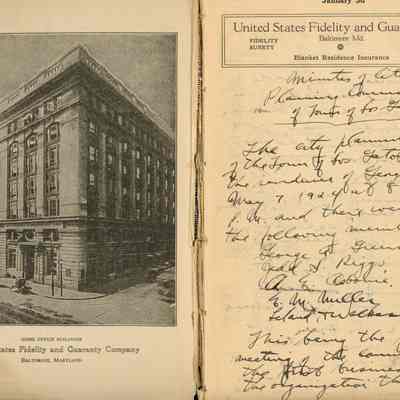 HOME OFFICE BUILDINGS
tates Fidelity and Guaranty Company
BALTIMORE, MARYLAND
January 3d
United States Fidelity and Gua
FIDELITY
SURETY
Baltimore Md.
Blanket Residence Insurance
Minutes of Cit
Planning Commi
of Town of Los G
The city plannin
of the Town of Los Gatos
the residence of Georg
May 7 1929 at 8
P.M. and there were
the following memb
George A. Green
Jean S. Riggs
E. M. Miller
This being the f
meeting of the Comm
the first business
the organization th